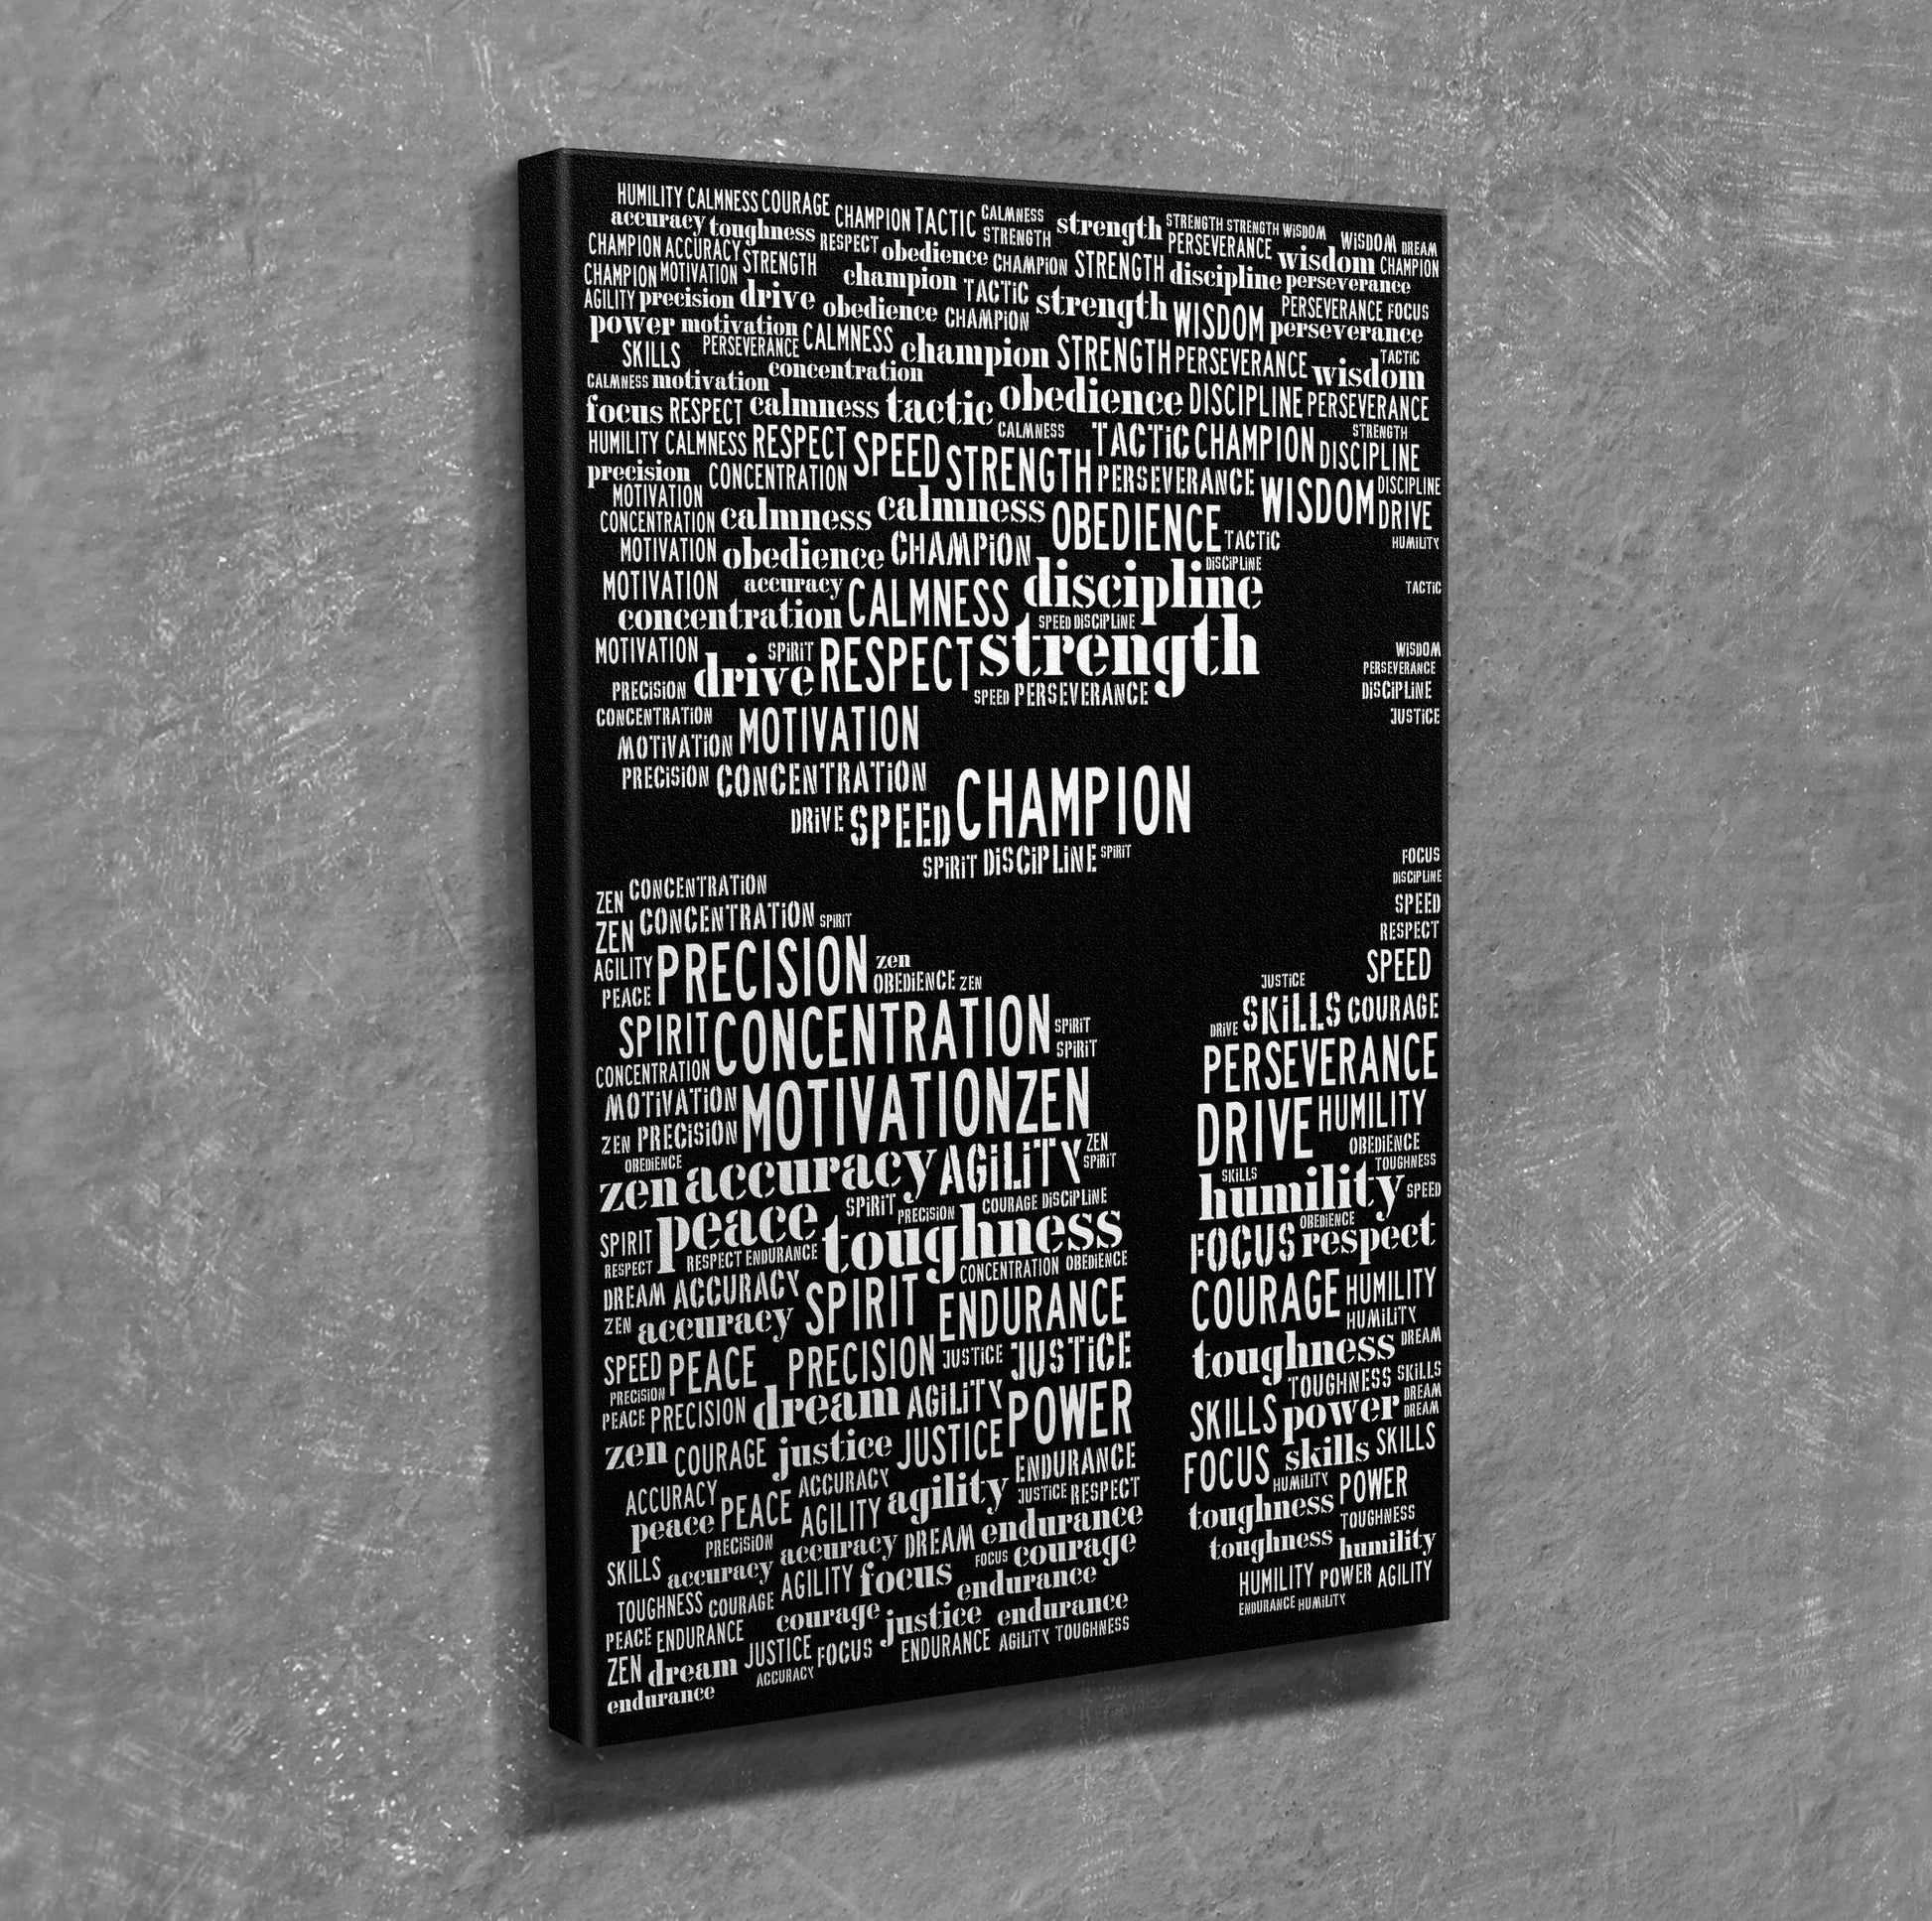 HUMILITY CALMNESS COURAGE CHAMPION TACTIC CALMNESS strength STRENGTH STRENGTH WISDOM WISDOM DREAM
accuracy toughness RESPECT obedience STRENGTH CHAMPION STRENGTH PERSEVERANCE wisdom CHAMPION
CHAMPION ACCURACY STRENGTH champion TACTIC discipline perseverance
CHAMPION MOTIVATION
AGILITY precision drive obedience CHAMPION strength WISDOM PERSEVERANCE FOCUS
power motivation CALMNESS champion STRENGTH PERSEVERANCE perseverance
SKILLS PERSEVERANCE concentration wisdom TACTIC
CALMNESS motivation
focus RESPECT calmness tactic obedience DISCIPLINE PERSEVERANCE
HUMILITY CALMNESS RESPECT SPEED CALMNESS TACTIC CHAMPION STRENGTH DISCIPLINE
precision CONCENTRATION STRENGTH PERSEVERANCE WISDOM DISCIPLINE
MOTIVATION
CONCENTRATION calmness calmness OBEDIENCE DRIVE
MOTIVATION obedience CHAMPION TACTIC HUMILITY
MOTIVATION accuracy CALMNESS discipline DISCIPLINE TACTIC
concentration SPEED DISCIPLINE
MOTIVATION SPIRIT RESPECT strength WISDOM
PERSEVERANCE
PRECISION drive SPEED PERSEVERANCE DISCIPLINE
CONCENTRATION MOTIVATION JUSTICE
MOTIVATION
PRECISION CONCENTRATION
DRIVE SPEED CHAMPION
SPIRIT DISCIPLINE SPIRIT FOCUS
DISCIPLINE
ZEN CONCENTRATION SPEED
ZEN CONCENTRATION SPIRIT RESPECT
AGILITY PRECISION zen SPEED
PEACE OBEDIENCE ZEN JUSTICE
SPIRIT CONCENTRATION SPIRIT DRIVE SKILLS COURAGE
SPIRIT
CONCENTRATION PERSEVERANCE
MOTIVATION MOTIVATION ZEN DRIVE HUMILITY
ZEN PRECISION ZEN OBEDIENCE
OBEDIENCE SPIRIT TOUGHNESS
zen accuracy AGILITY SKILLS humility SPEED
SPIRIT PRECISION COURAGE DISCIPLINE OBEDIENCE
SPIRIT peace toughness FOCUS respect
RESPECT RESPECT ENDURANCE CONCENTRATION OBEDIENCE
DREAM ACCURACY SPIRIT ENDURANCE COURAGE HUMILITY
ZEN accuracy HUMILITY
SPEED PEACE PRECISION JUSTICE JUSTICE toughness DREAM
PRECISION TOUGHNESS SKILLS
PEACE PRECISION dream AGILITY POWER SKILLS power DREAM
DREAM
zen COURAGE justice JUSTICE FOCUS skills SKILLS
ACCURACY ACCURACY ENDURANCE HUMILITY POWER
PEACE AGILITY agility JUSTICE RESPECT toughness
peace TOUGHNESS
PRECISION accuracy DREAM endurance toughness humility
SKILLS accuracy AGILITY focus FOCUS courage HUMILITY POWER AGILITY
TOUGHNESS COURAGE endurance ENDURANCE HUMILITY
PEACE ENDURANCE courage justice endurance
ZEN dream JUSTICE FOCUS ENDURANCE AGILITY TOUGHNESS
ACCURACY
endurance